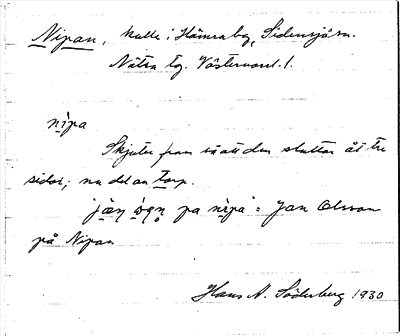 Nipan, kulle i Hämra by, Sidensjö sn.
Nätra tg. Västernorrl. l.
nìpa
Skjuter fram så att den sluttar åt tre
sidor; nu del av torp.
pa nìpa: Jan Olsson
på Nipan
Hans N. Söderberg 1930